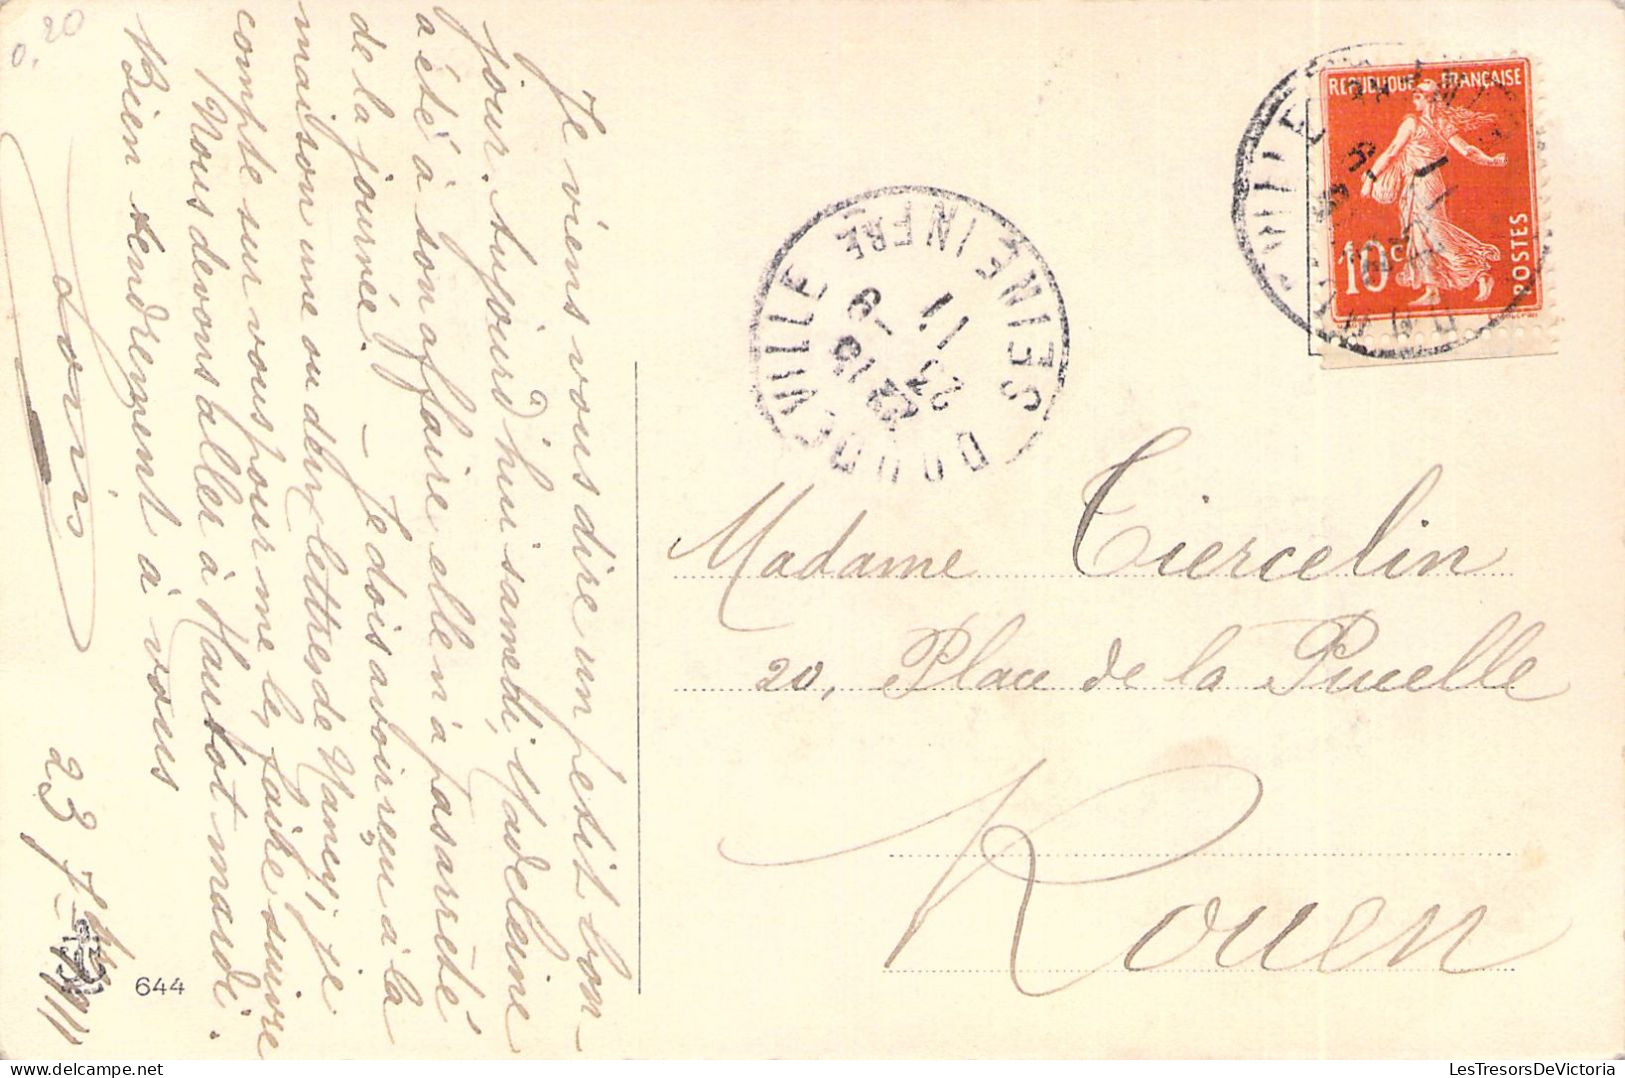 0,20
Je viens vous dire un petit bon-
jour. aujourd'hui samedi, Madeleine
a été à son affaire elle n'a pas arrêté
de la journée. — Je dois avoir reçu à la
maison une ou deux lettres de Nancy, je
compte sur vous pour me les faire suivre
Nous devons aller à Hautot mardi.
Bien tendrement à vous
Louis
23 7
11
644
REPUBLIQUE FRANÇAISE
10c
POSTES
DOUDEVILLE
SEINE INFRE
12 15
23 - 9
11
Madame Tiercelin
20, Place de la Pucelle
Rouen
LesTresorsDeVictoria